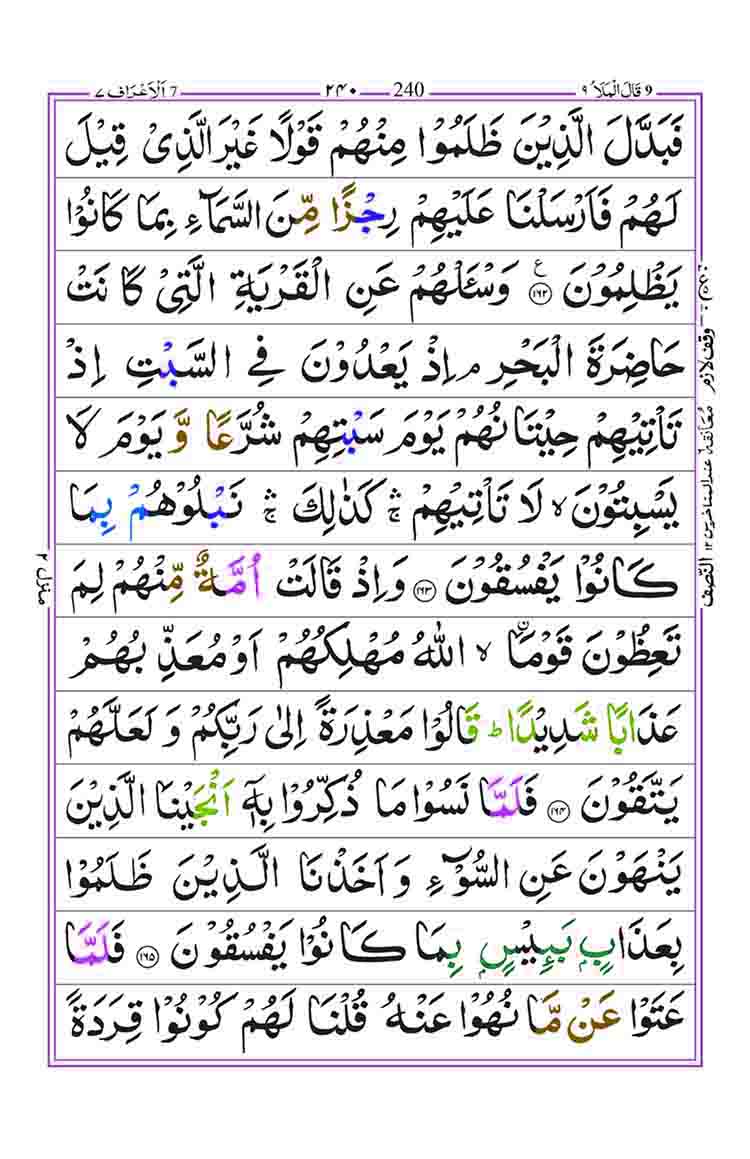 9 قَالَ الْمَلَاُ ٩
240 ٢٤٠
7 اَلْاَعْرَاف ٧
فَبَدَّلَ الَّذِيْنَ ظَلَمُوْا مِنْهُمْ قَوْلًا غَيْرَ الَّذِىْ قِيْلَ
لَهُمْ فَاَرْسَلْنَا عَلَيْهِمْ رِجْزًا مِّنَ السَّمَآءِ بِمَا كَانُوْا
يَظْلِمُوْنَ ع ١٦٢ وَسْـَٔلْهُمْ عَنِ الْقَرْيَةِ الَّتِىْ كَانَتْ
حَاضِرَةَ الْبَحْرِ ۘ اِذْ يَعْدُوْنَ فِى السَّبْتِ اِذْ
تَاْتِيْهِمْ حِيْتَانُهُمْ يَوْمَ سَبْتِهِمْ شُرَّعًا وَّ يَوْمَ لَا
يَسْبِتُوْنَ ۙ لَا تَاْتِيْهِمْ ۛ كَذٰلِكَ ۛ نَبْلُوْهُمْ بِمَا
كَانُوْا يَفْسُقُوْنَ ١٦٣ وَاِذْ قَالَتْ اُمَّةٌ مِّنْهُمْ لِمَ
تَعِظُوْنَ قَوْمَاۨ ۙ اللّٰهُ مُهْلِكُهُمْ اَوْ مُعَذِّبُهُمْ
عَذَابًا شَدِيْدًا ؕ قَالُوْا مَعْذِرَةً اِلٰى رَبِّكُمْ وَ لَعَلَّهُمْ
يَتَّقُوْنَ ١٦٤ فَلَمَّا نَسُوْا مَا ذُكِّرُوْا بِهٖۤ اَنْجَيْنَا الَّذِيْنَ
يَنْهَوْنَ عَنِ السُّوْٓءِ وَ اَخَذْنَا الَّذِيْنَ ظَلَمُوْا
بِعَذَابٍۭ بَـِٕيْسٍۭ بِمَا كَانُوْا يَفْسُقُوْنَ ١٦٥ فَلَمَّا
عَتَوْا عَنْ مَّا نُهُوْا عَنْهُ قُلْنَا لَهُمْ كُوْنُوْا قِرَدَةً
وقف لازم
معانقة عند المتاخرين ١٢
النصف
منزل ٢